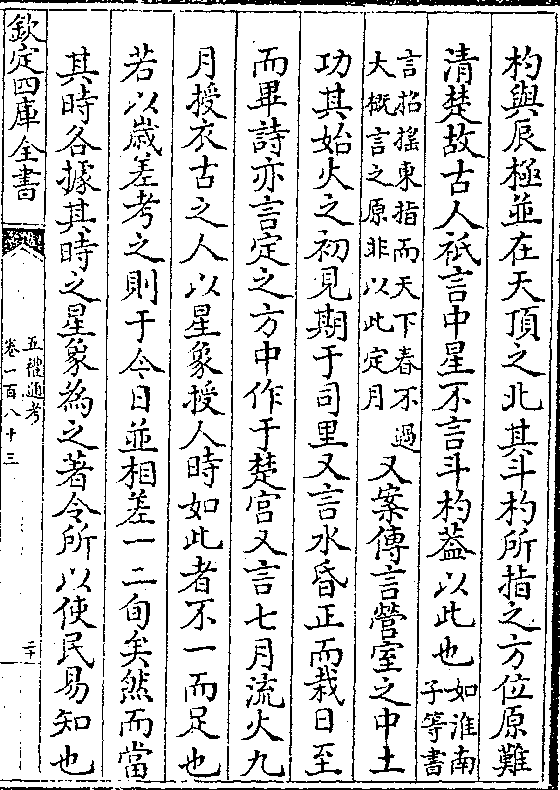 杓與辰極並在天頂之北其斗杓所指之方位原難
清楚故古人祇言中星不言斗杓葢以此也如淮南子等書
言招搖東指而天下春不過大概言之原非以此定月又案傳言營室之中土
功其始火之初見期于司里又言水昏正而栽日至
而畢詩亦言定之方中作于楚宫又言七月流火九
月授衣古之人以星象授人時如此者不一而足也
若以歳差考之則于今日並相差一二旬矣然而當
其時各據其時之星象為之著令所以使民易知也
欽定四庫全書
五禮通考
卷一百八十三
二十